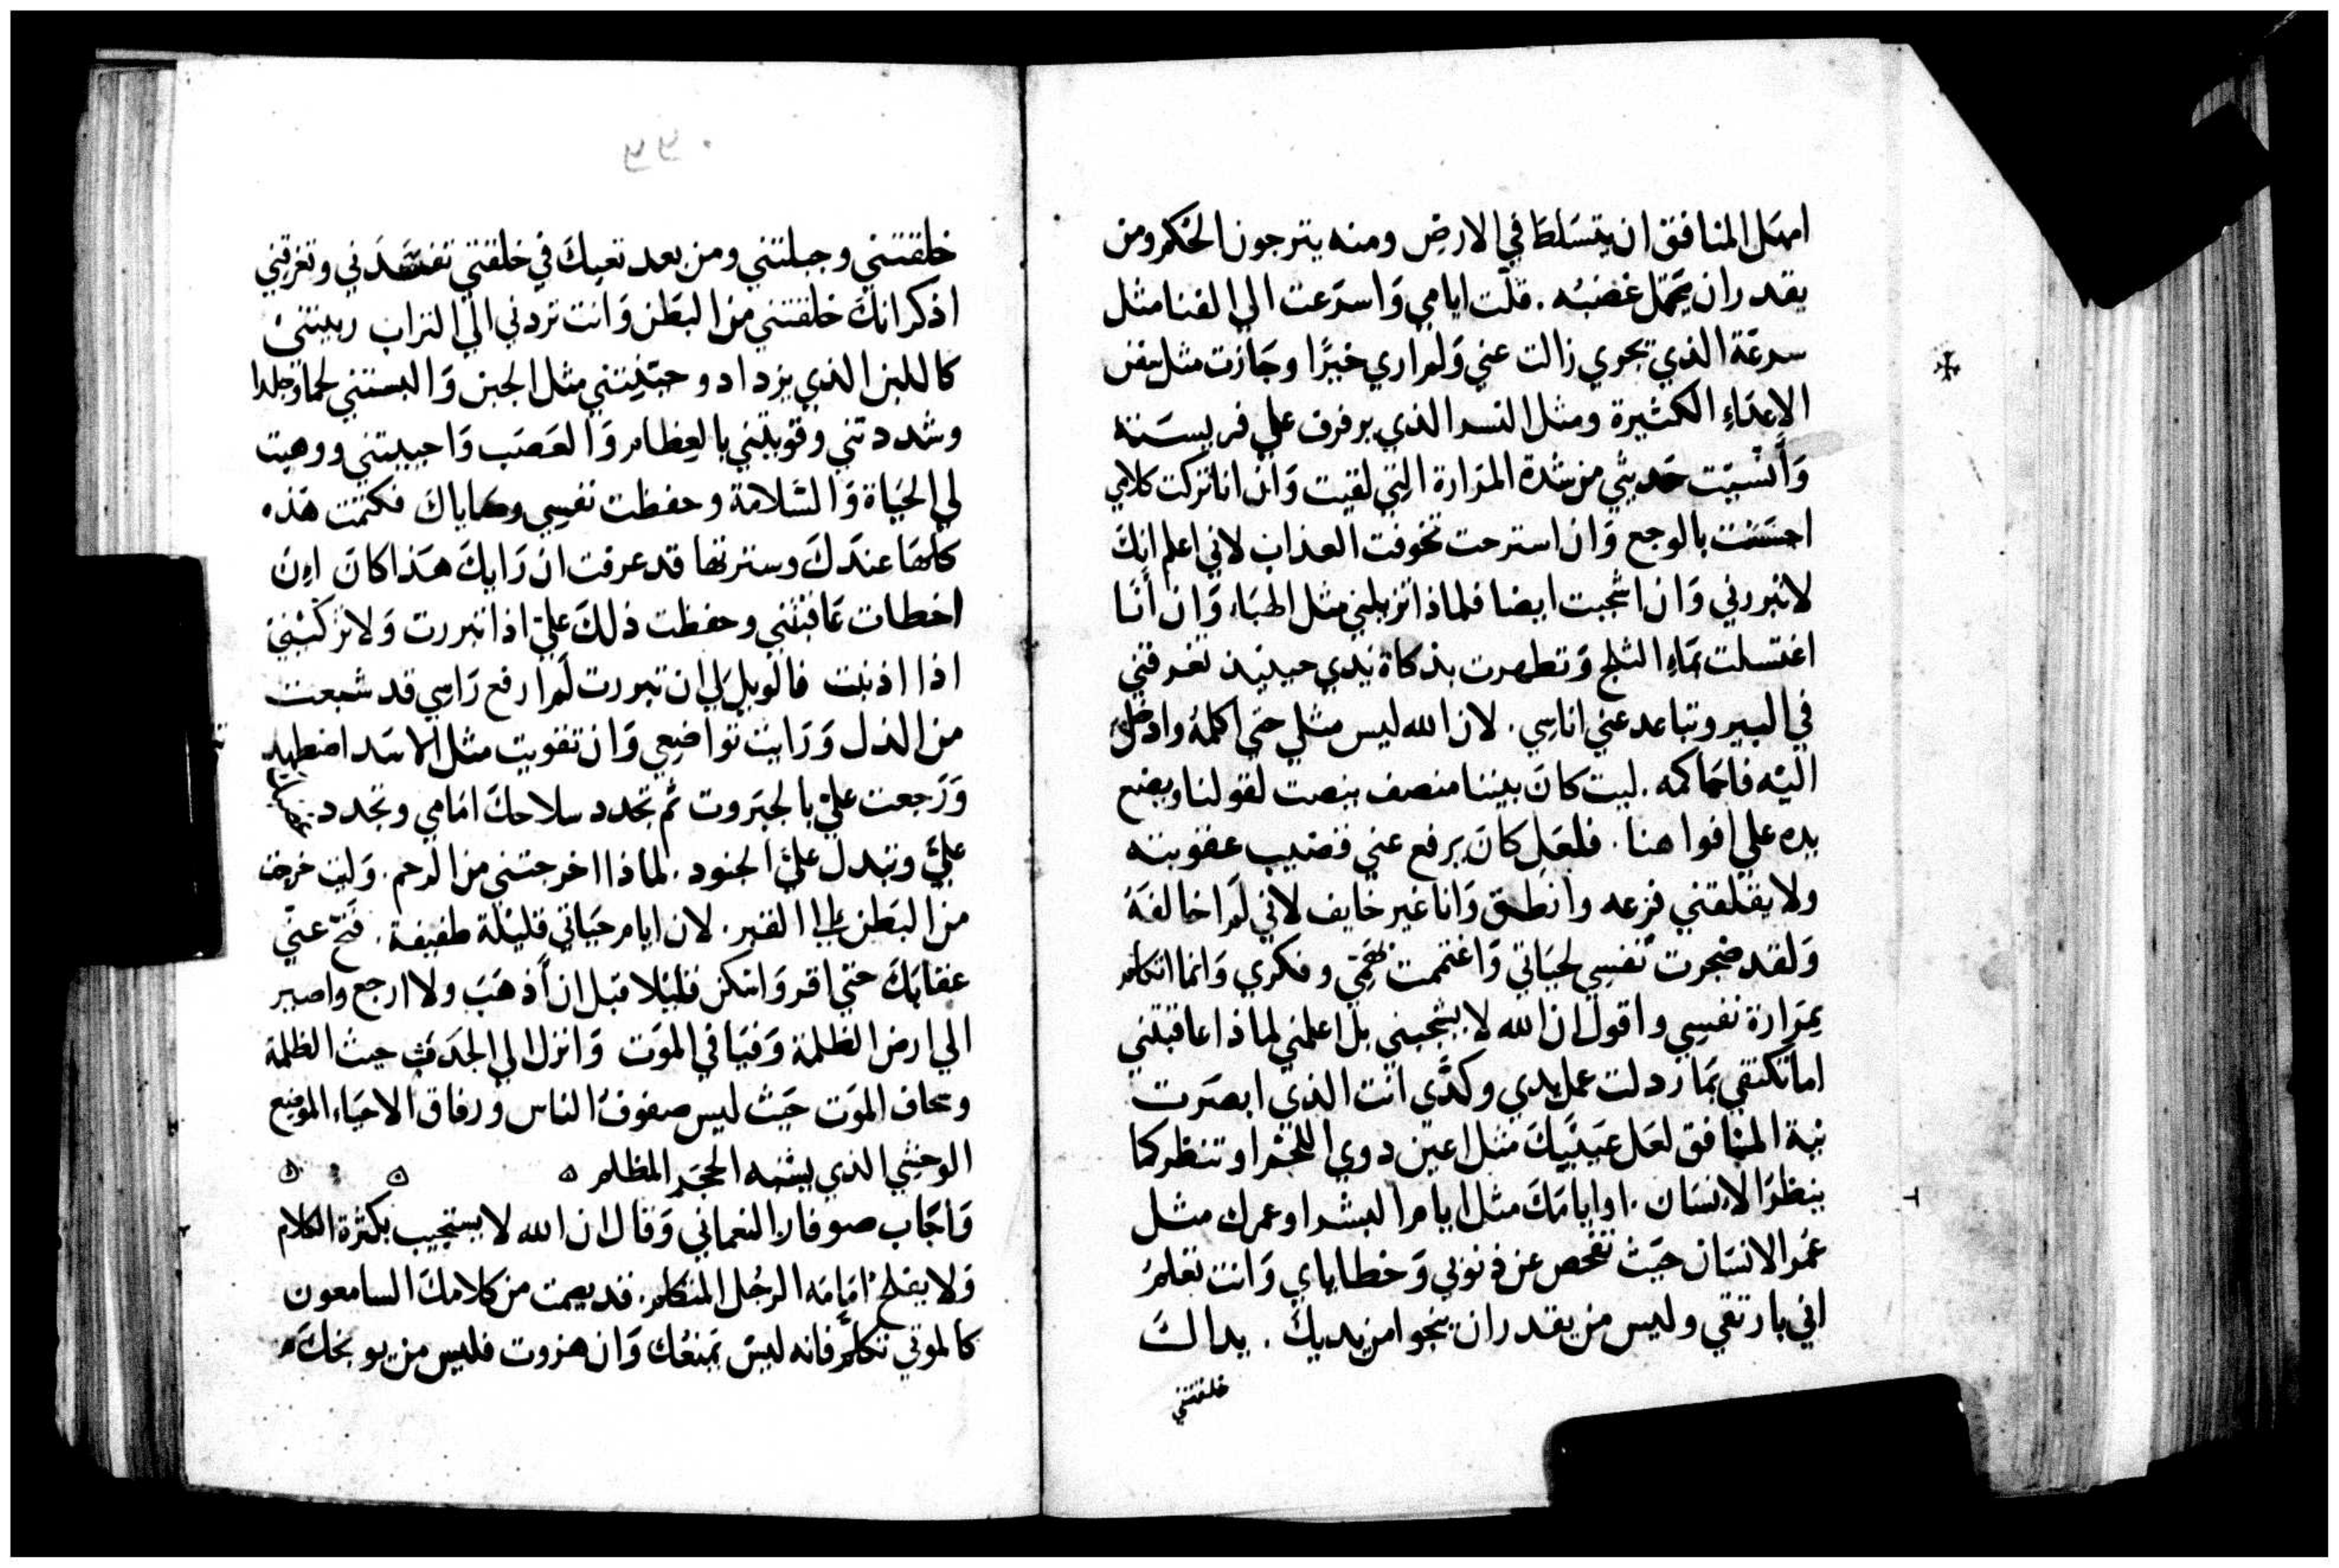 امهل المنافق ان يتسلط في الارض ومنه يترجون الحكم ومن
يقدر ان يحتمل غضبه. قلّت ايامي وَاسرَعت الي الفنا مثل
سرعَة الذي يجري زالت عني وَلم اري خيرًا وجَازت مثل سفن
الاعدَاءِ الكثيرة ومثل النسر الذي يرفرف علي فريسَته
وَأنسيَت حَديثي من شدة المرَارة التي لقيت وَان انا تركت كلامي
احسَست بالوجع وَان استرحت تخوفت العذاب لاني اعلم انكَ
لا تبررني وَان اشجبت ايضا فلماذا تزيلني مثل الهبَاء وَان أنَا
اغتسلت بمَاءِ الثلج وَتطهرت بذكاة يَدي حينيذ تغرقني
في البير وتباعد عني اناسِي. لان الله ليس مثلي حتي اكلمهُ وادخل
اليْه فاحَاكمه. ليت كانَ بيننا منصف ينصت لقولنا ويضع
يده علي افواهنا. فلعَل كانَ يَرفع عني قضيب عقوبته
ولا يقلقني فزعه وانطلق وَانا غير خايف لاني لم اخالفهُ
وَلقد ضجرت نفسِي لحيَاتي وَاغتممت بهَمّي وفكري وَانما اتكلم
بمَرارة نفسِي واقول ان الله لا يشجبني بل اعلمني لماذا عاقبتني
اما تكتفي بمَا رذلت عمل يدي وكدّي انت الذي ابصَرت
نية المنَافق لعَل عَينيَكَ مثل اعين ذوي اللحم او تنظر كما
ينظرَ الانسَان. او ايامَكَ مثل ايام البشر او عمرك مثل
عُمر الانسَان حيَث تفحص عن ذنوبي وَخطاياي وَانت تعلم
اني بار تقي وليس من يقدر ان ينجوا من يديكَ. يداكَ
خلقتني
خلقتني وجبلتني ومن بعد تعبكَ في خلقتي تفتقدَني وتغرقني
اذكر انكَ خلقتني من البَطن وَانت تردني الي التراب ربيتني
كاللبن الذي يزداد وجبّنتني مثل الجبن وَالبستني لحمًا وجلدا
وشددتني وقويتني بالعِظام وَالعَصَب وَاحييتني ووهبت
لي الحيَاة وَالسَّلامَة وحفظت نفسِي وصاياكَ فكتمت هَذه
كلهَا عندَكَ وسترتها قد عرفت ان رَايكَ هَذا كانَ اِن
اخطات عَاقبتني وحفظت ذلكَ عليّ اذا تبررت وَلا تزكيني
اذا اذنبت فالويل لي ان تبررت لم ارفع رَاسِي قد شبعت
من الذل وَرَايت توَاضعِي وَان تقويت مثل الاسَد اضطهد
وَرَجعت عليّ بالجبَروت ثم تجدد سلاحكَ امَامي وتجدد
عليَّ وتبدل عليّ الجنود. لماذا اخرجتني من الرحم. وَليت خرجت
من البَطن الي القبر. لان ايام حيَاتي قليلة طفيفة. فَنحّ عنّي
عقابكَ حتي اقر وَاسَكن قليلا قبل ان أذهَبَ ولا ارجع واصير
الي ارض الظلمة وَفيَافي الموَت وَانزل الي الجدَث حيث الظلمة
وسجاف الموَت حيَث ليس صفوف الناس ورفاق الاحيَاء الموضع
الوحشي الذي يشبه الحجَر المظلم
وَاجَاب صوفار النعماني وَقال ان الله لا يستجيب بكثرة الكلام
وَلا يفلح امَامَه الرجُل المتكلم. قد يصمت من كلامكَ السامعون
كالموتي تكلم فانه ليسَ يمنعُك وَان هزوت فليس من يوبخكَ